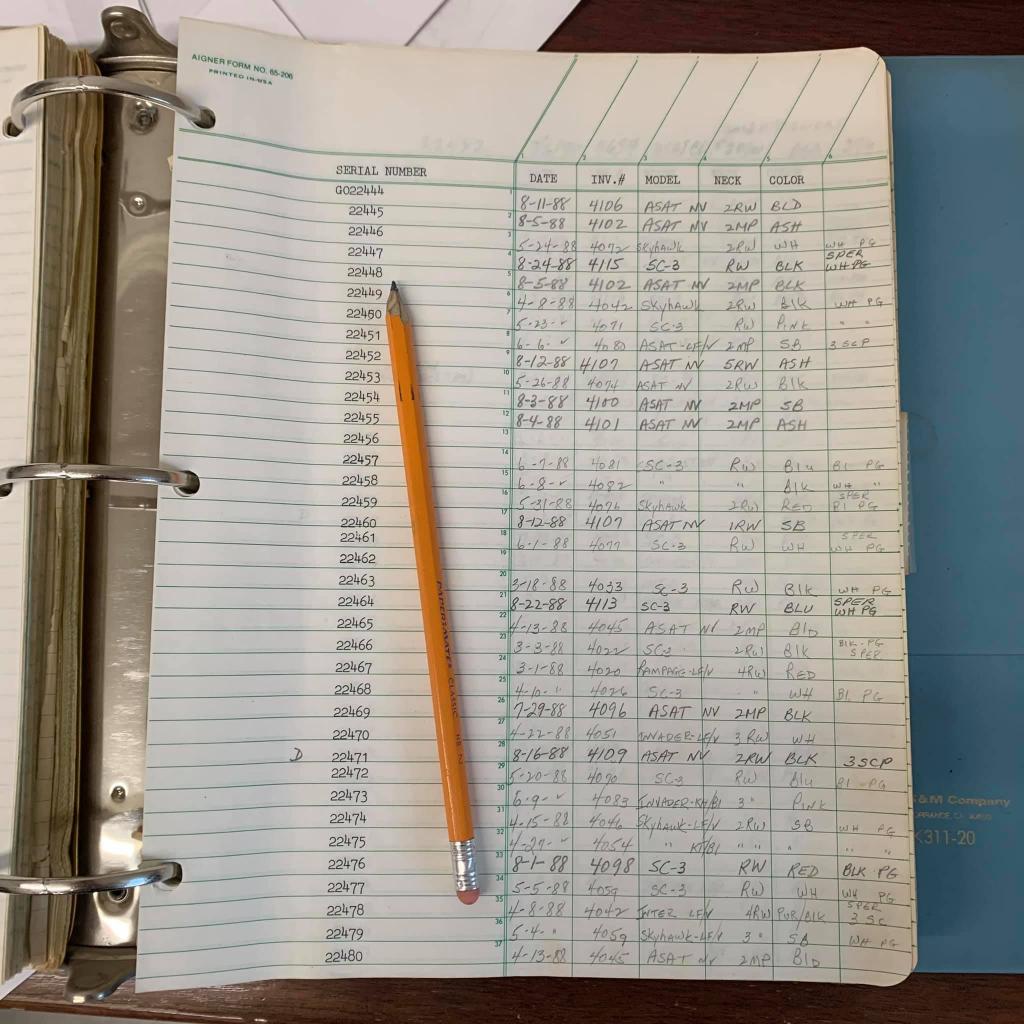 AIGNER FORM NO. 65-206
PRINTED IN USA
1 2 3 4 5 6
SERIAL NUMBER DATE INV.# MODEL NECK COLOR
G022444 1 8-11-88 4106 ASAT NV 2RW BLD
22445 2 8-5-88 4102 ASAT NV 2MP ASH
22446 3 5-24-88 4072 Skyhawk 2RW WH WH PG
22447 4 8-24-88 4115 SC-3 RW BLK SPER WH PG
22448 5 8-5-88 4102 ASAT NV 2MP BLK
22449 6 4-8-88 4042 Skyhawk 2RW Blk WH PG
22450 7 5-23-" 4071 SC-3 RW Pink " "
22451 8 6-6-" 4080 ASAT-LF/V 2MP SB 3SCP
22452 9 8-12-88 4107 ASAT NV 5RW ASH
22453 10 5-26-88 4074 ASAT NV 2RW Blk
22454 11 8-3-88 4100 ASAT NV 2MP SB
22455 12 8-4-88 4101 ASAT NV 2MP ASH
22456 13
22457 14 6-7-88 4081 SC-3 RW Blu Bl PG
22458 15 6-8-" 4082 " " Blk WH "
22459 16 5-31-88 4076 Skyhawk 2RW RED SPER Bl PG
22460 17 8-12-88 4107 ASAT NV 1RW SB
22461 18 6-1-88 4077 SC-3 RW WH SPER WH PG
22462 19
22463 20 3-18-88 4033 SC-3 RW Blk WH PG
22464 21 8-22-88 4113 SC-3 RW BLU SPER WH PG
22465 22 4-13-88 4045 ASAT NV 2MP BlD
22466 23 3-3-88 4022 SC-2 2RW Blk Blk-PG SPER
22467 24 3-1-88 4020 RAMPAGE-LF/V 4RW RED
22468 25 4-10-" 4026 SC-3 " WH Bl PG
22469 26 7-29-88 4096 ASAT NV 2MP BLK
22470 27 4-22-88 4051 INVADER-LF/V 3RW WH
D 22471 28 8-16-88 4109 ASAT NV 2RW BLK 3SCP
22472 29 5-20-88 4070 SC-3 RW Blu Bl-PG
22473 30 6-9-" 4083 INVADER-KH/Bl 3" Pink
22474 31 4-15-88 4046 Skyhawk-LF/V 2RW SB WH PG
22475 32 4-27-" 4054 " KH/Bl " " " " "
22476 33 8-1-88 4098 SC-3 RW RED BLK PG
22477 34 5-5-88 4059 SC-3 RW WH WH PG
22478 35 4-8-88 4042 INTER LF/V 4RW PUR/Blk SPER 3SC
22479 36 5-4-" 4059 Skyhawk-LF/V 3" SB WH PG
22480 37 4-13-88 4045 ASAT NV 2MP BlD
PAPER:MATE CLASSIC HB
&M Company
K311-20